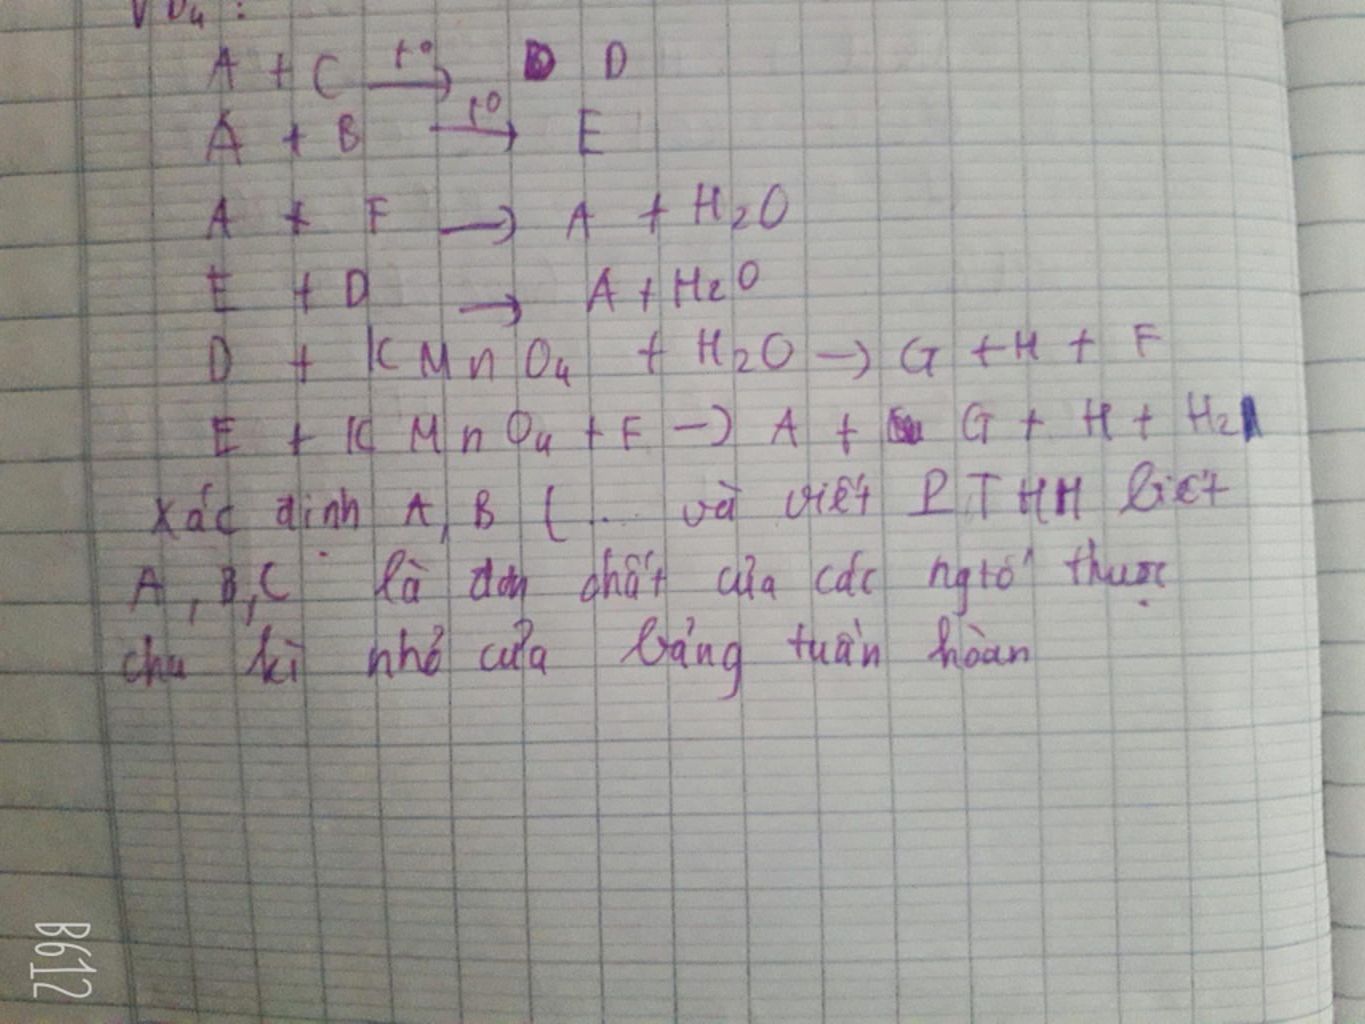 A + C t° → D D
A + B t° → E
A + F → A + H2O
E + D → A + H2O
D + KMnO4 + H2O → G + H + F
E + KMnO4 + F → A + G + H + H2
Xác định A, B (... và viết PTHH biết
A, B, C là đơn chất của các ngtố thuộc
chu kì nhỏ của bảng tuần hoàn
B612